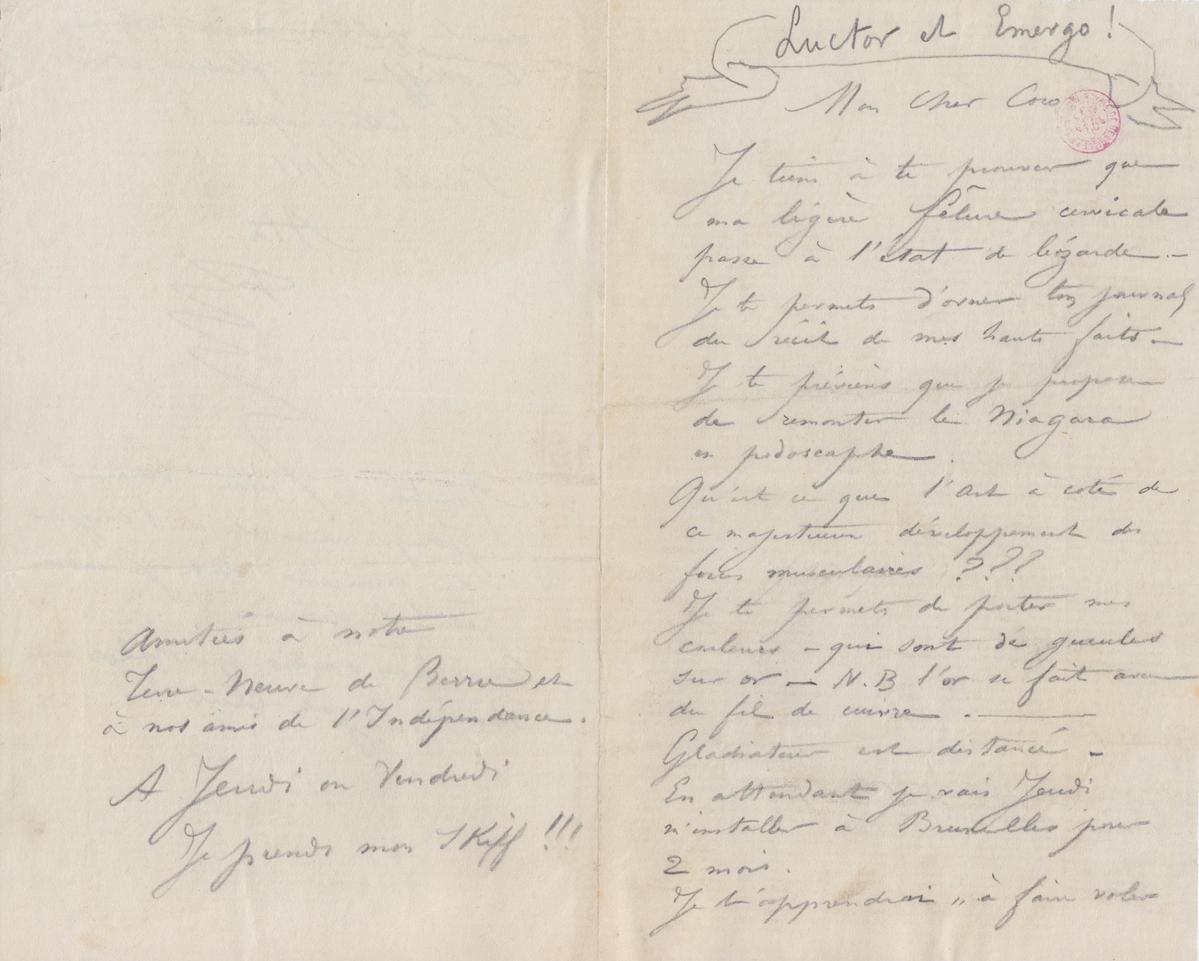 Luctor et Emergo!
Mon Cher Coco
Je tiens à te prouver que
ma légère fêlure cervicale
passe à l'état de lézarde. —
Je te permets d'orner ton journal
du récit de mes hauts faits. —
Je te préviens que je propose
de remonter le Niagara
en podoscaphe.
Qu'est ce que l'Art à coté de
ce majestueux développement des
forces musculaires ???
Je te permets de porter mes
couleurs — qui sont de gueules
sur or — N.B l'or se fait avec
du fil de cuivre. —
Gladiateur est distancé —
En attendant je vais Jeudi
m'installer à Bruxelles pour
2 mois.
Je t'apprendrai „ à faire voler
Amitiés à notre
Terre-Neuve de et
à nos amis de l'Indépendance.
A Jeudi ou Vendredi
Je prends mon Skiff !!!